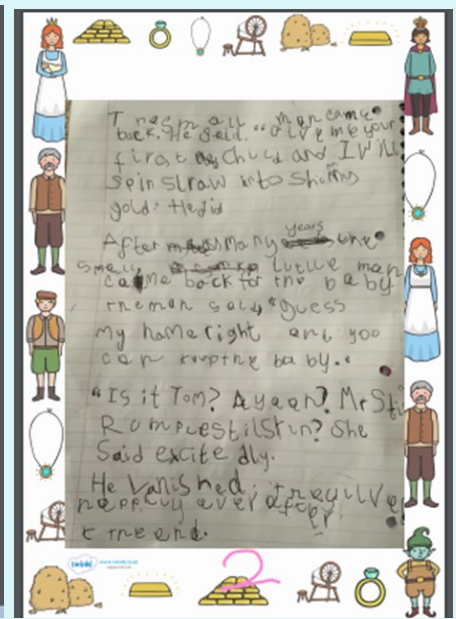 The small man came
back. He said, "Give me your
first child and I will
spin straw into shiny
gold. He did
After many years the
small little man
came back for the baby
the man said, "Guess
my name right and you
can keep the baby.
"Is it Tom? Ayaan? Mr
Rumplestilskin? She
Said excitedly.
He vanished. they live
happily ever after
the end.
twinkl
2